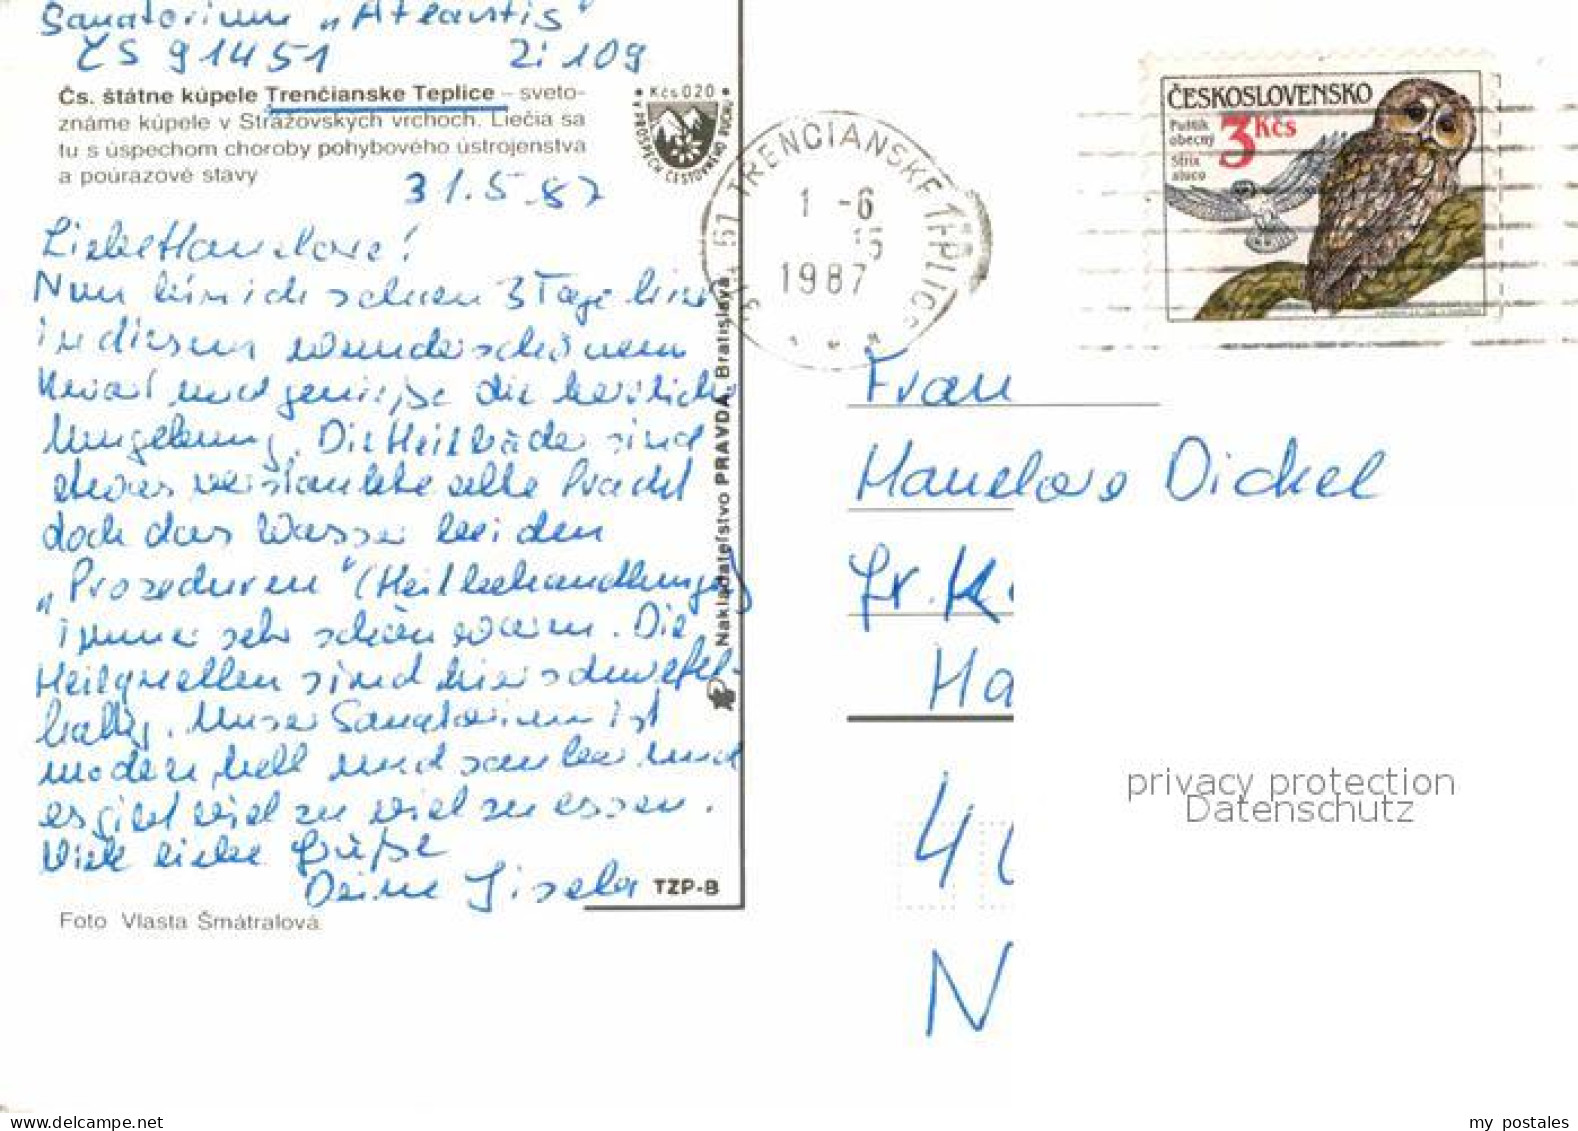 Sanatorium „Atlantis"
ČS 91451 Zi 109
Čs. štátne kúpele Trenčianske Teplice – sveto-
známe kúpele v Strážovských vrchoch. Liečia sa
tu s úspechom choroby pohybového ústrojenstva
a poúrazové stavy
• Kčs 020 •
A PROSPECH CESTOVNÉHO RUCHU
31.5.87
Liebe Hanelore!
Nun bin ich schon 3 Tage hier
in diesem wunderschönen
und genieße die herrliche
Umgebung. Die Heilbäder sind
etwas verstaubte alte Pracht
doch das Wasser bei den
„Prozeduren" (Heilbehandlungen)
immer sehr schön warm. Die
Heilquellen sind hier schwefel-
haltig. Unser Sanatorium ist
modern, hell und sauber und
es gibt viel zu viel zu essen.
Viele liebe Grüße
Deine Gisela
TZP-B
Foto Vlasta Šmátralová
Nakladateľstvo PRAVDA, Bratislava
TRENČIANSKE TEPLICE
1 -6
1987
ČESKOSLOVENSKO
3 Kčs
Puštík
obecný
Strix
aluco
Frau
Hanelore Dickel
Gr. K
Ha
4
N
privacy protection
Datenschutz
my postales